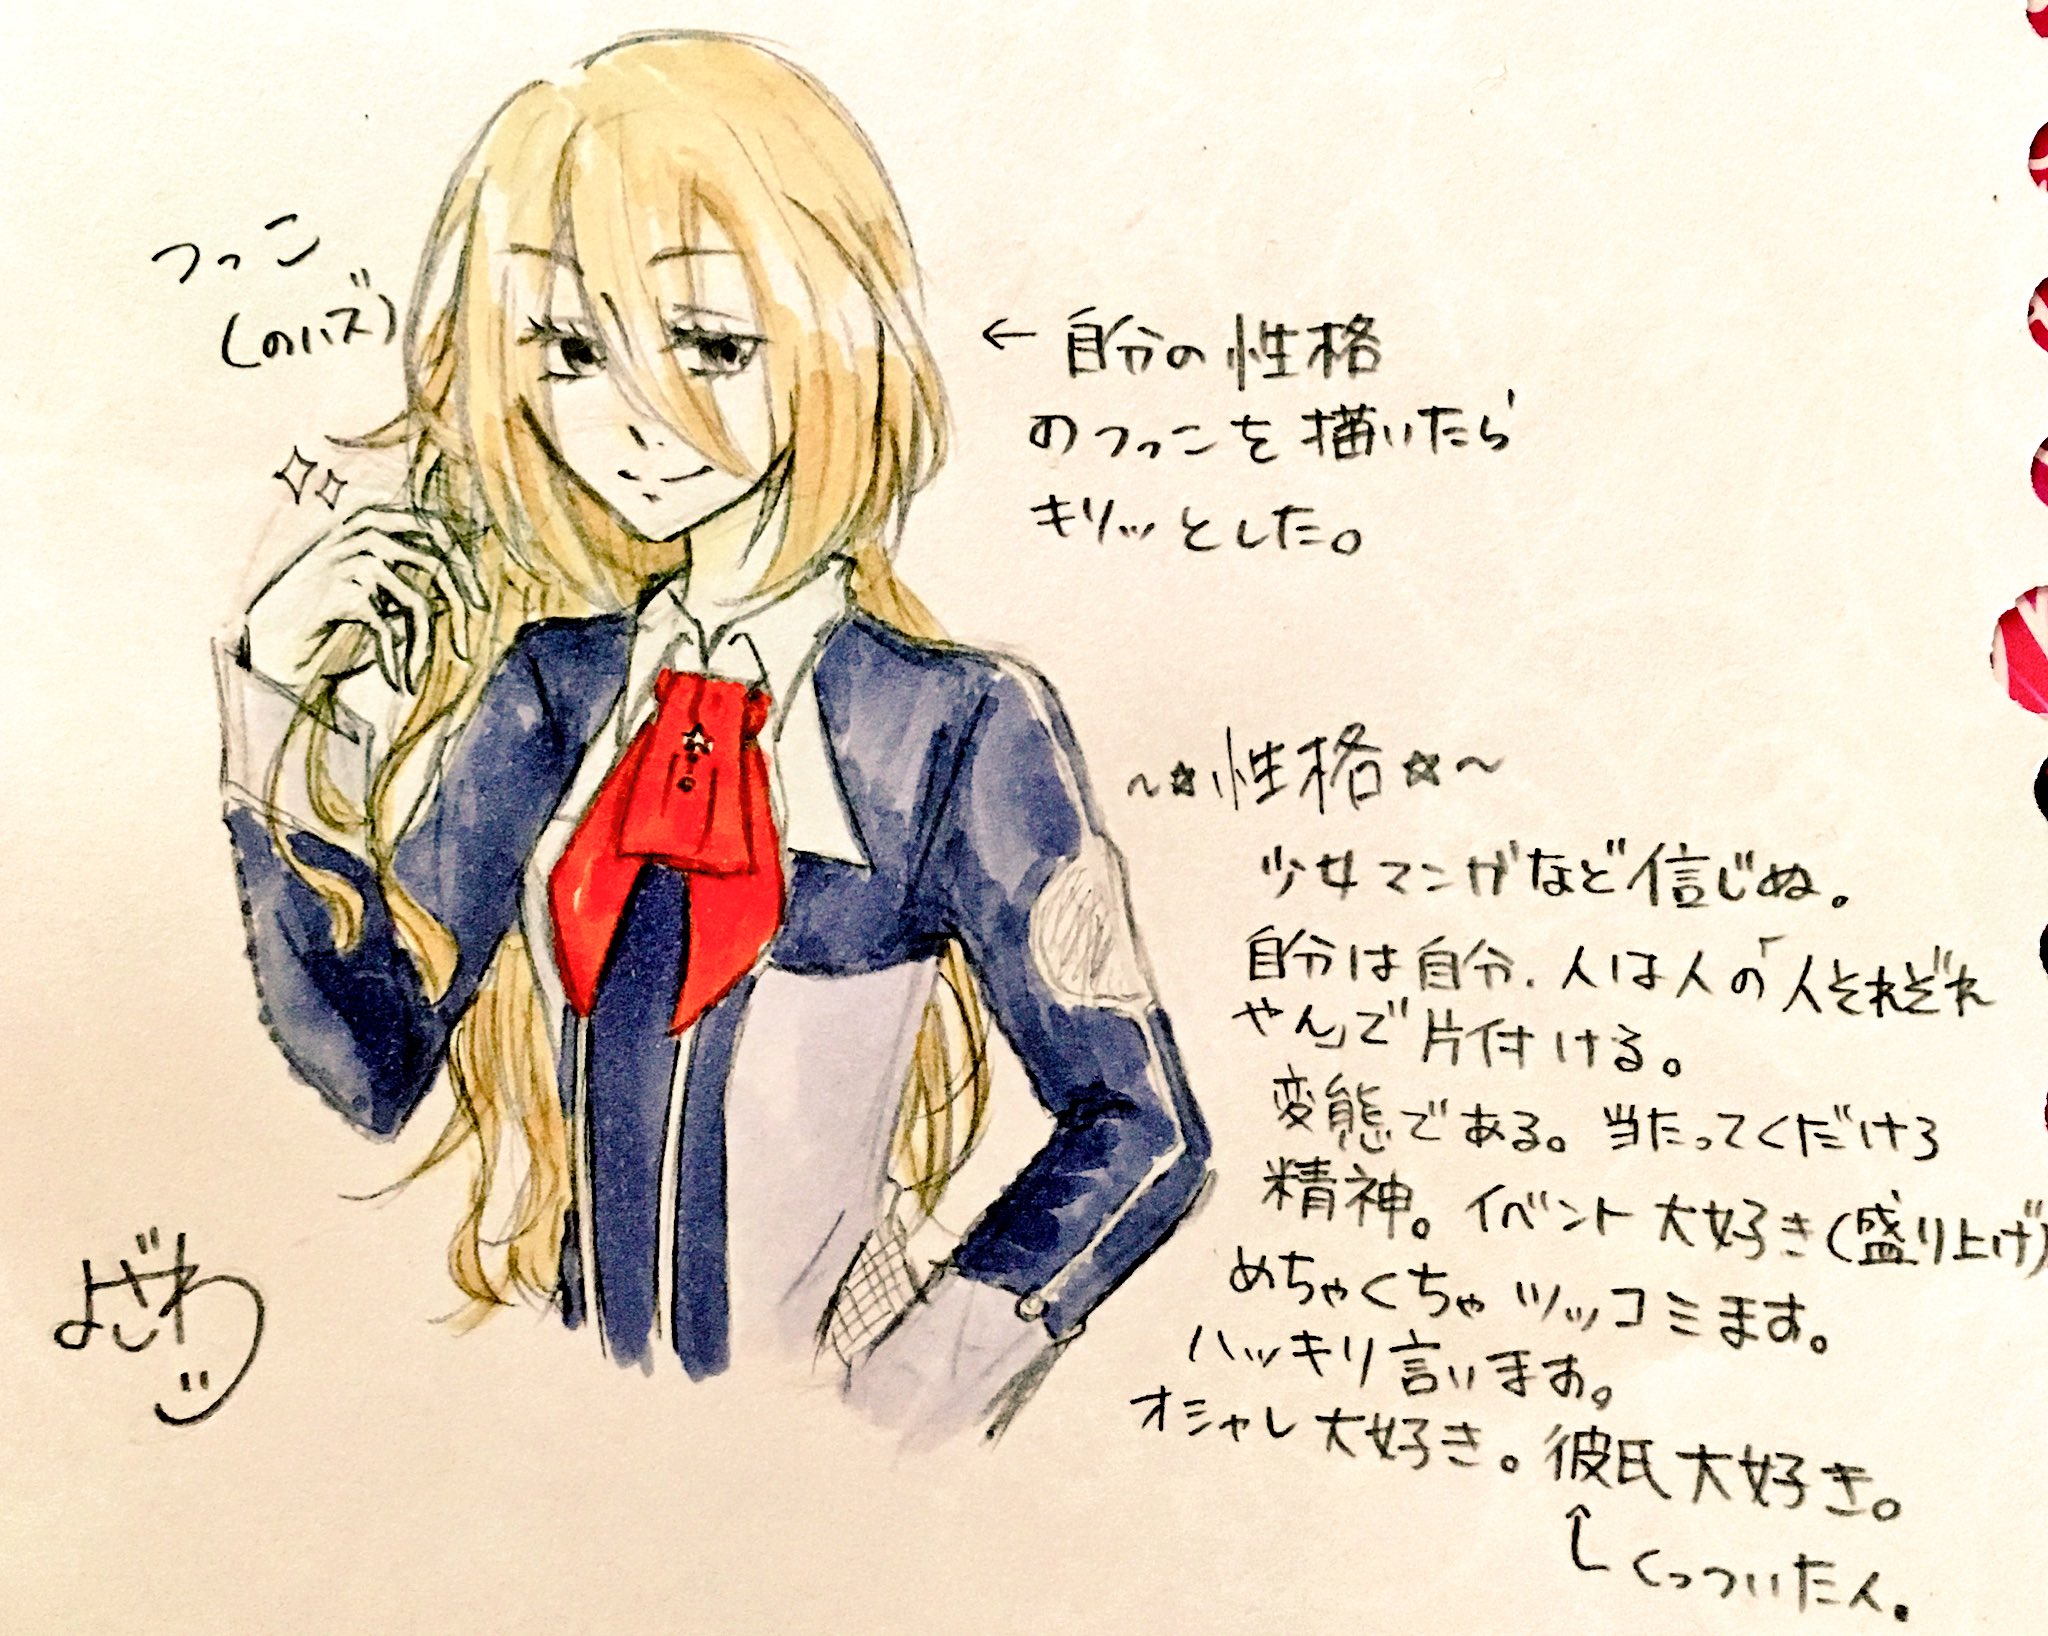 つっこ
(のハズ)
← 自分の性格
のつっこを描いたら
キリッとした。
～☆性格☆～
少女マンガなど信じぬ。
自分は自分、人は人の「人それぞれ
やん」で片付ける。
変態である。当たってくだけろ
精神。イベント大好き(盛り上げ)
めちゃくちゃツッコミます。
ハッキリ言います。
オシャレ大好き。彼氏大好き。
くっついた人。
よざわ